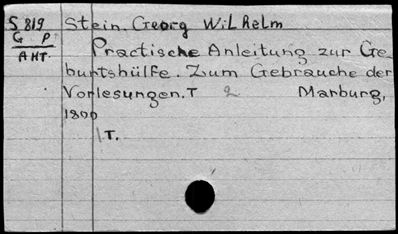 S 819 Stein. Georg Wilhelm
G P
AHT.
Practische Anleitung zur Ge-
burtshülfe. Zum Gebrauche der
Vorlesungen. T 2 Marburg,
1800
1 T.